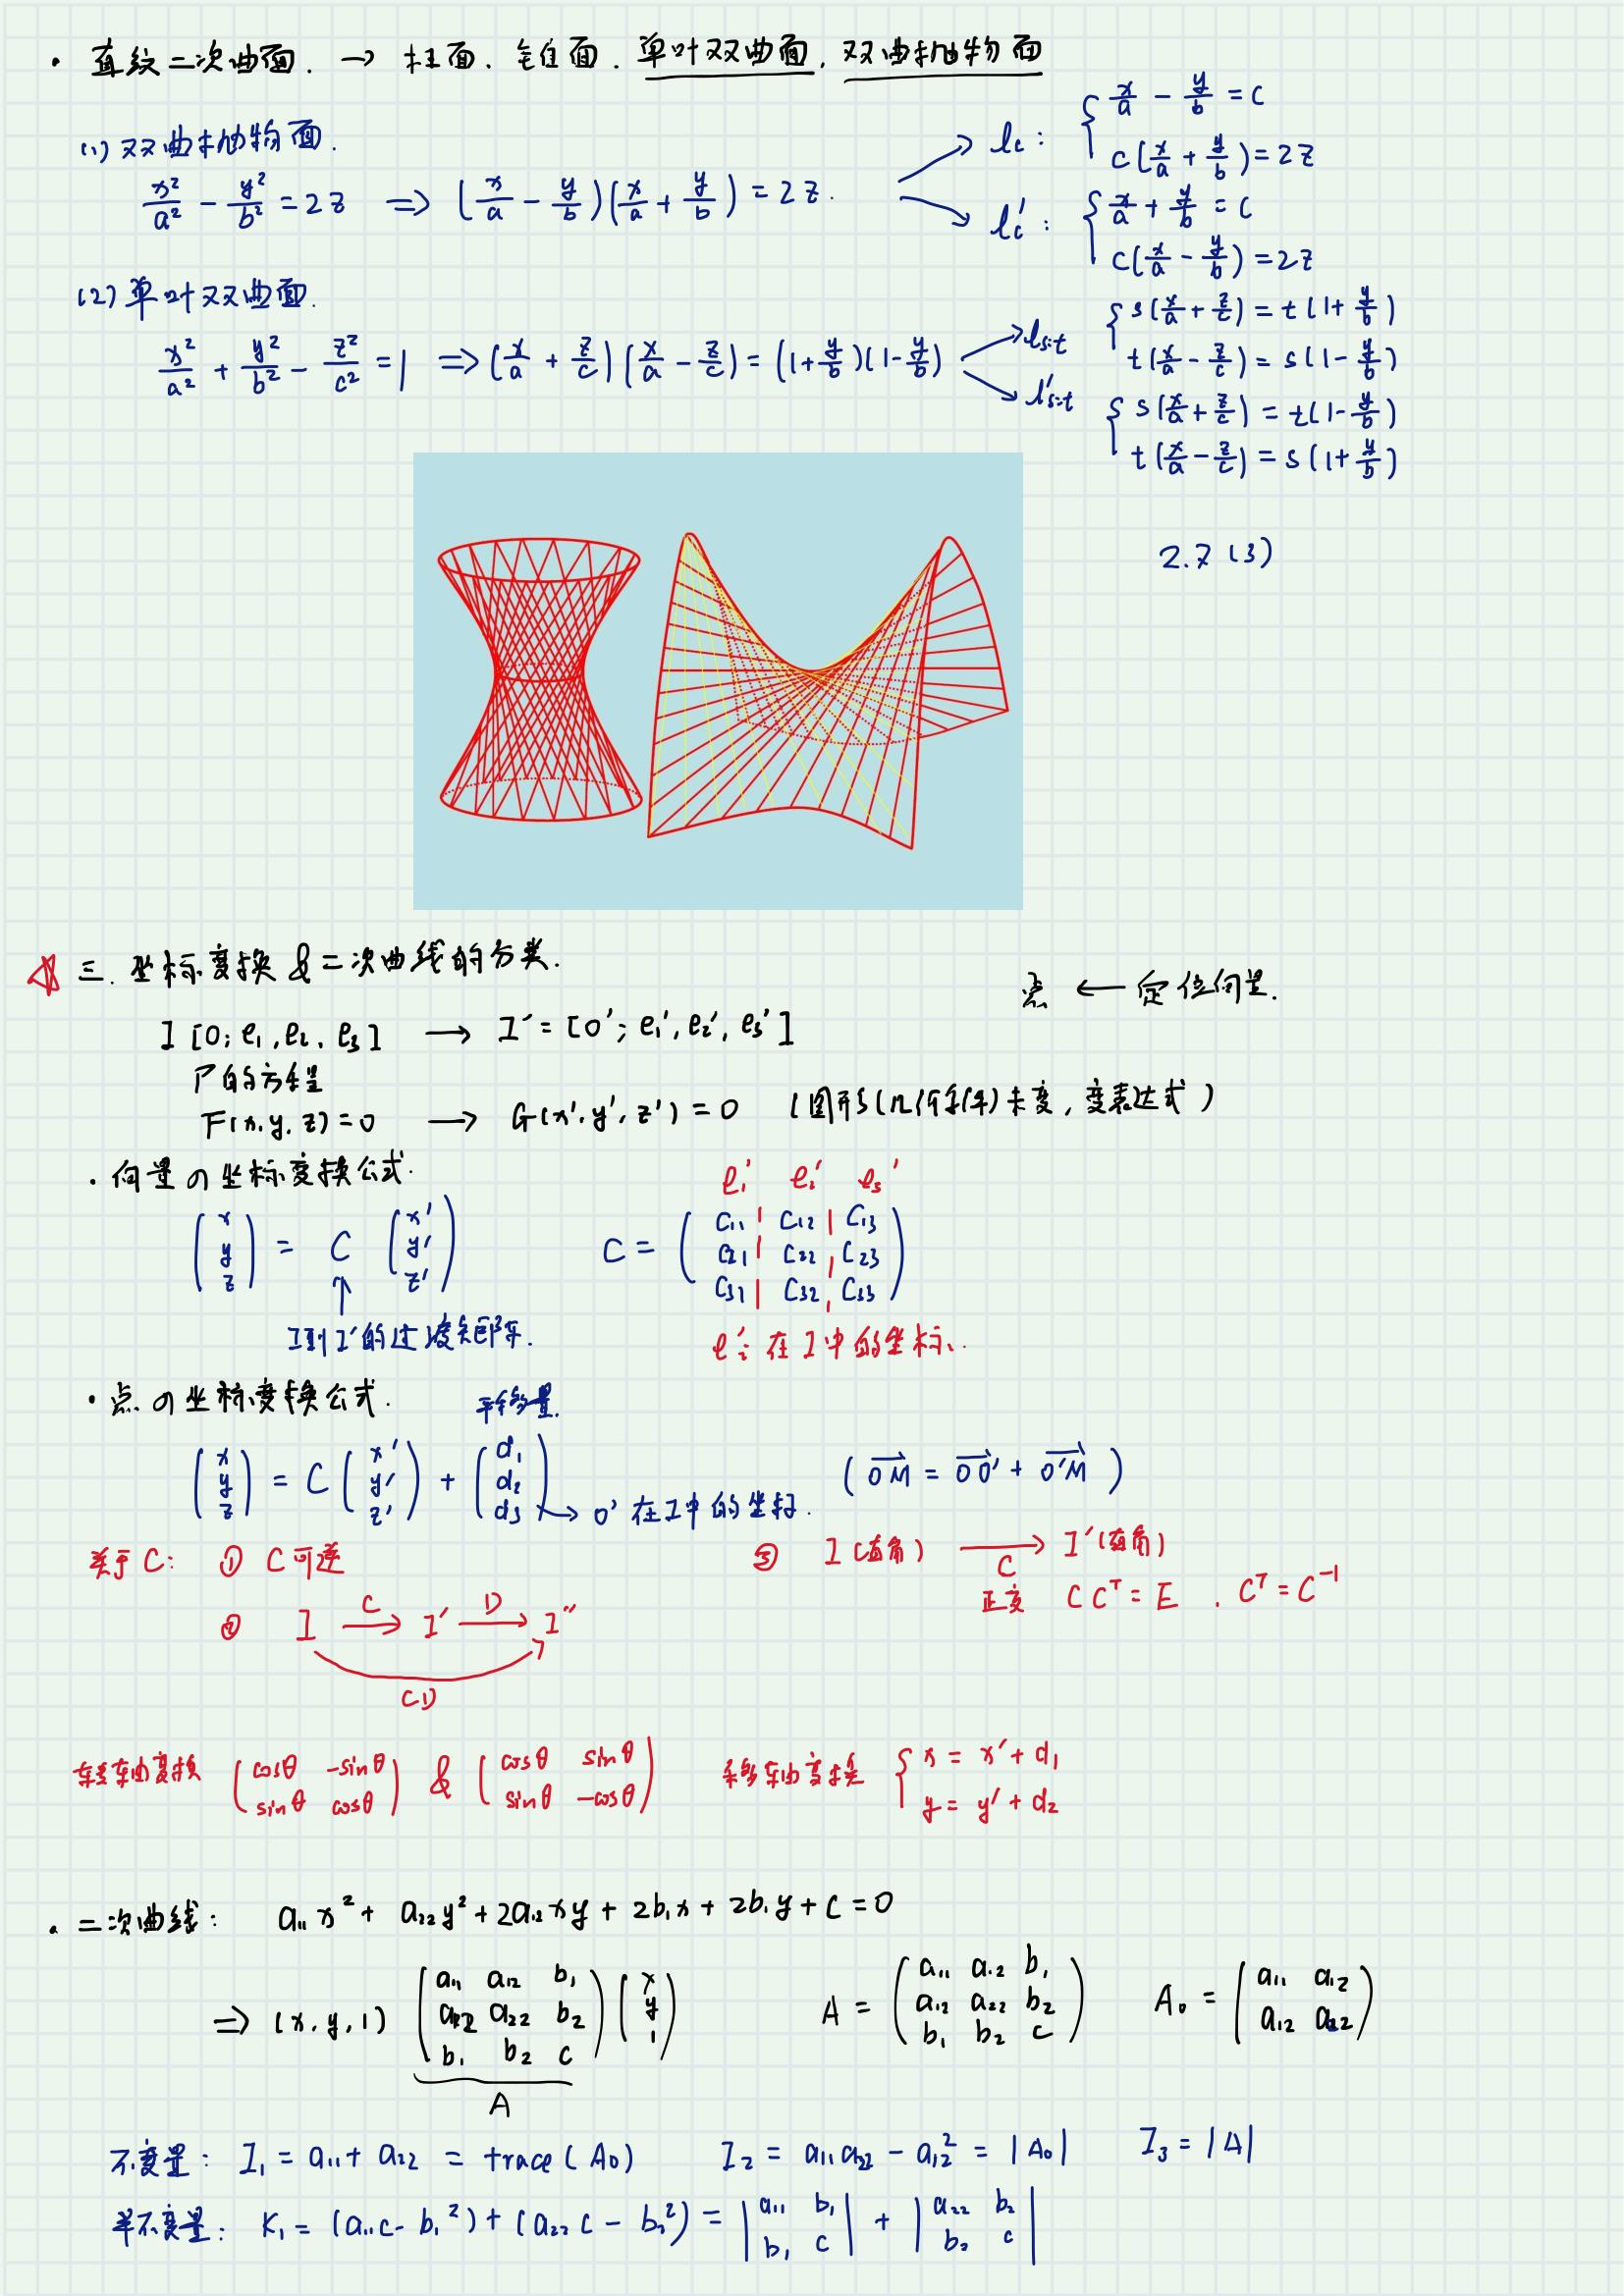 · 直纹二次曲面. → 柱面、锥面. 单叶双曲面, 双曲抛物面
(1) 双曲抛物面.
x²/a² - y²/b² = 2z ⇒ (x/a - y/b)(x/a + y/b) = 2z.
lc: { x/a - y/b = c
c(x/a + y/b) = 2z
lc': { x/a + y/b = c
c(x/a - y/b) = 2z
(2) 单叶双曲面.
x²/a² + y²/b² - z²/c² = 1 ⇒ (x/a + z/c)(x/a - z/c) = (1 + y/b)(1 - y/b)
ls:t { s(x/a + z/c) = t(1 + y/b)
t(x/a - z/c) = s(1 - y/b)
l's:t { s(x/a + z/c) = t(1 - y/b)
t(x/a - z/c) = s(1 + y/b)
2.7 (3)
三. 坐标变换 & 二次曲线的分类.
点 ← 定位向量.
I [O; e1, e2, e3] → I' = [O'; e1', e2', e3']
Γ的方程
F(x, y, z) = 0 → G(x', y', z') = 0 (图形(几何条件)未变, 变表达式)
· 向量の坐标变换公式.
(x y z) = C (x' y' z')
I到I'的过渡矩阵.
e1' e2' e3'
C = ( c11 c12 c13
c21 c22 c23
c31 c32 c33 )
ei': 在I中的坐标.
· 点の坐标变换公式.
平移量.
(x y z) = C (x' y' z') + (d1 d2 d3) → O'在I中的坐标.
(OM = OO' + O'M)
关于C: ① C可逆
② I →C I' →D I''
CD
③ I(直角) →C I'(直角)
正交 CCᵀ = E . Cᵀ = C⁻¹
转轴变换 (cosθ -sinθ
sinθ cosθ) & (cosθ sinθ
sinθ -cosθ)
移轴变换 { x = x' + d1
y = y' + d2
· 二次曲线: a11x² + a22y² + 2a12xy + 2b1x + 2b1y + c = 0
⇒ (x, y, 1) (a11 a12 b1
a12 a22 b2
b1 b2 c) (x y 1)
A
A = (a11 a12 b1
a12 a22 b2
b1 b2 c)
A0 = (a11 a12
a12 a22)
不变量: I1 = a11 + a22 = trace(A0) I2 = a11a22 - a12² = |A0| I3 = |A|
半不变量: K1 = (a11c - b1²) + (a22c - b2²) = |a11 b1
b1 c| + |a22 b2
b2 c|